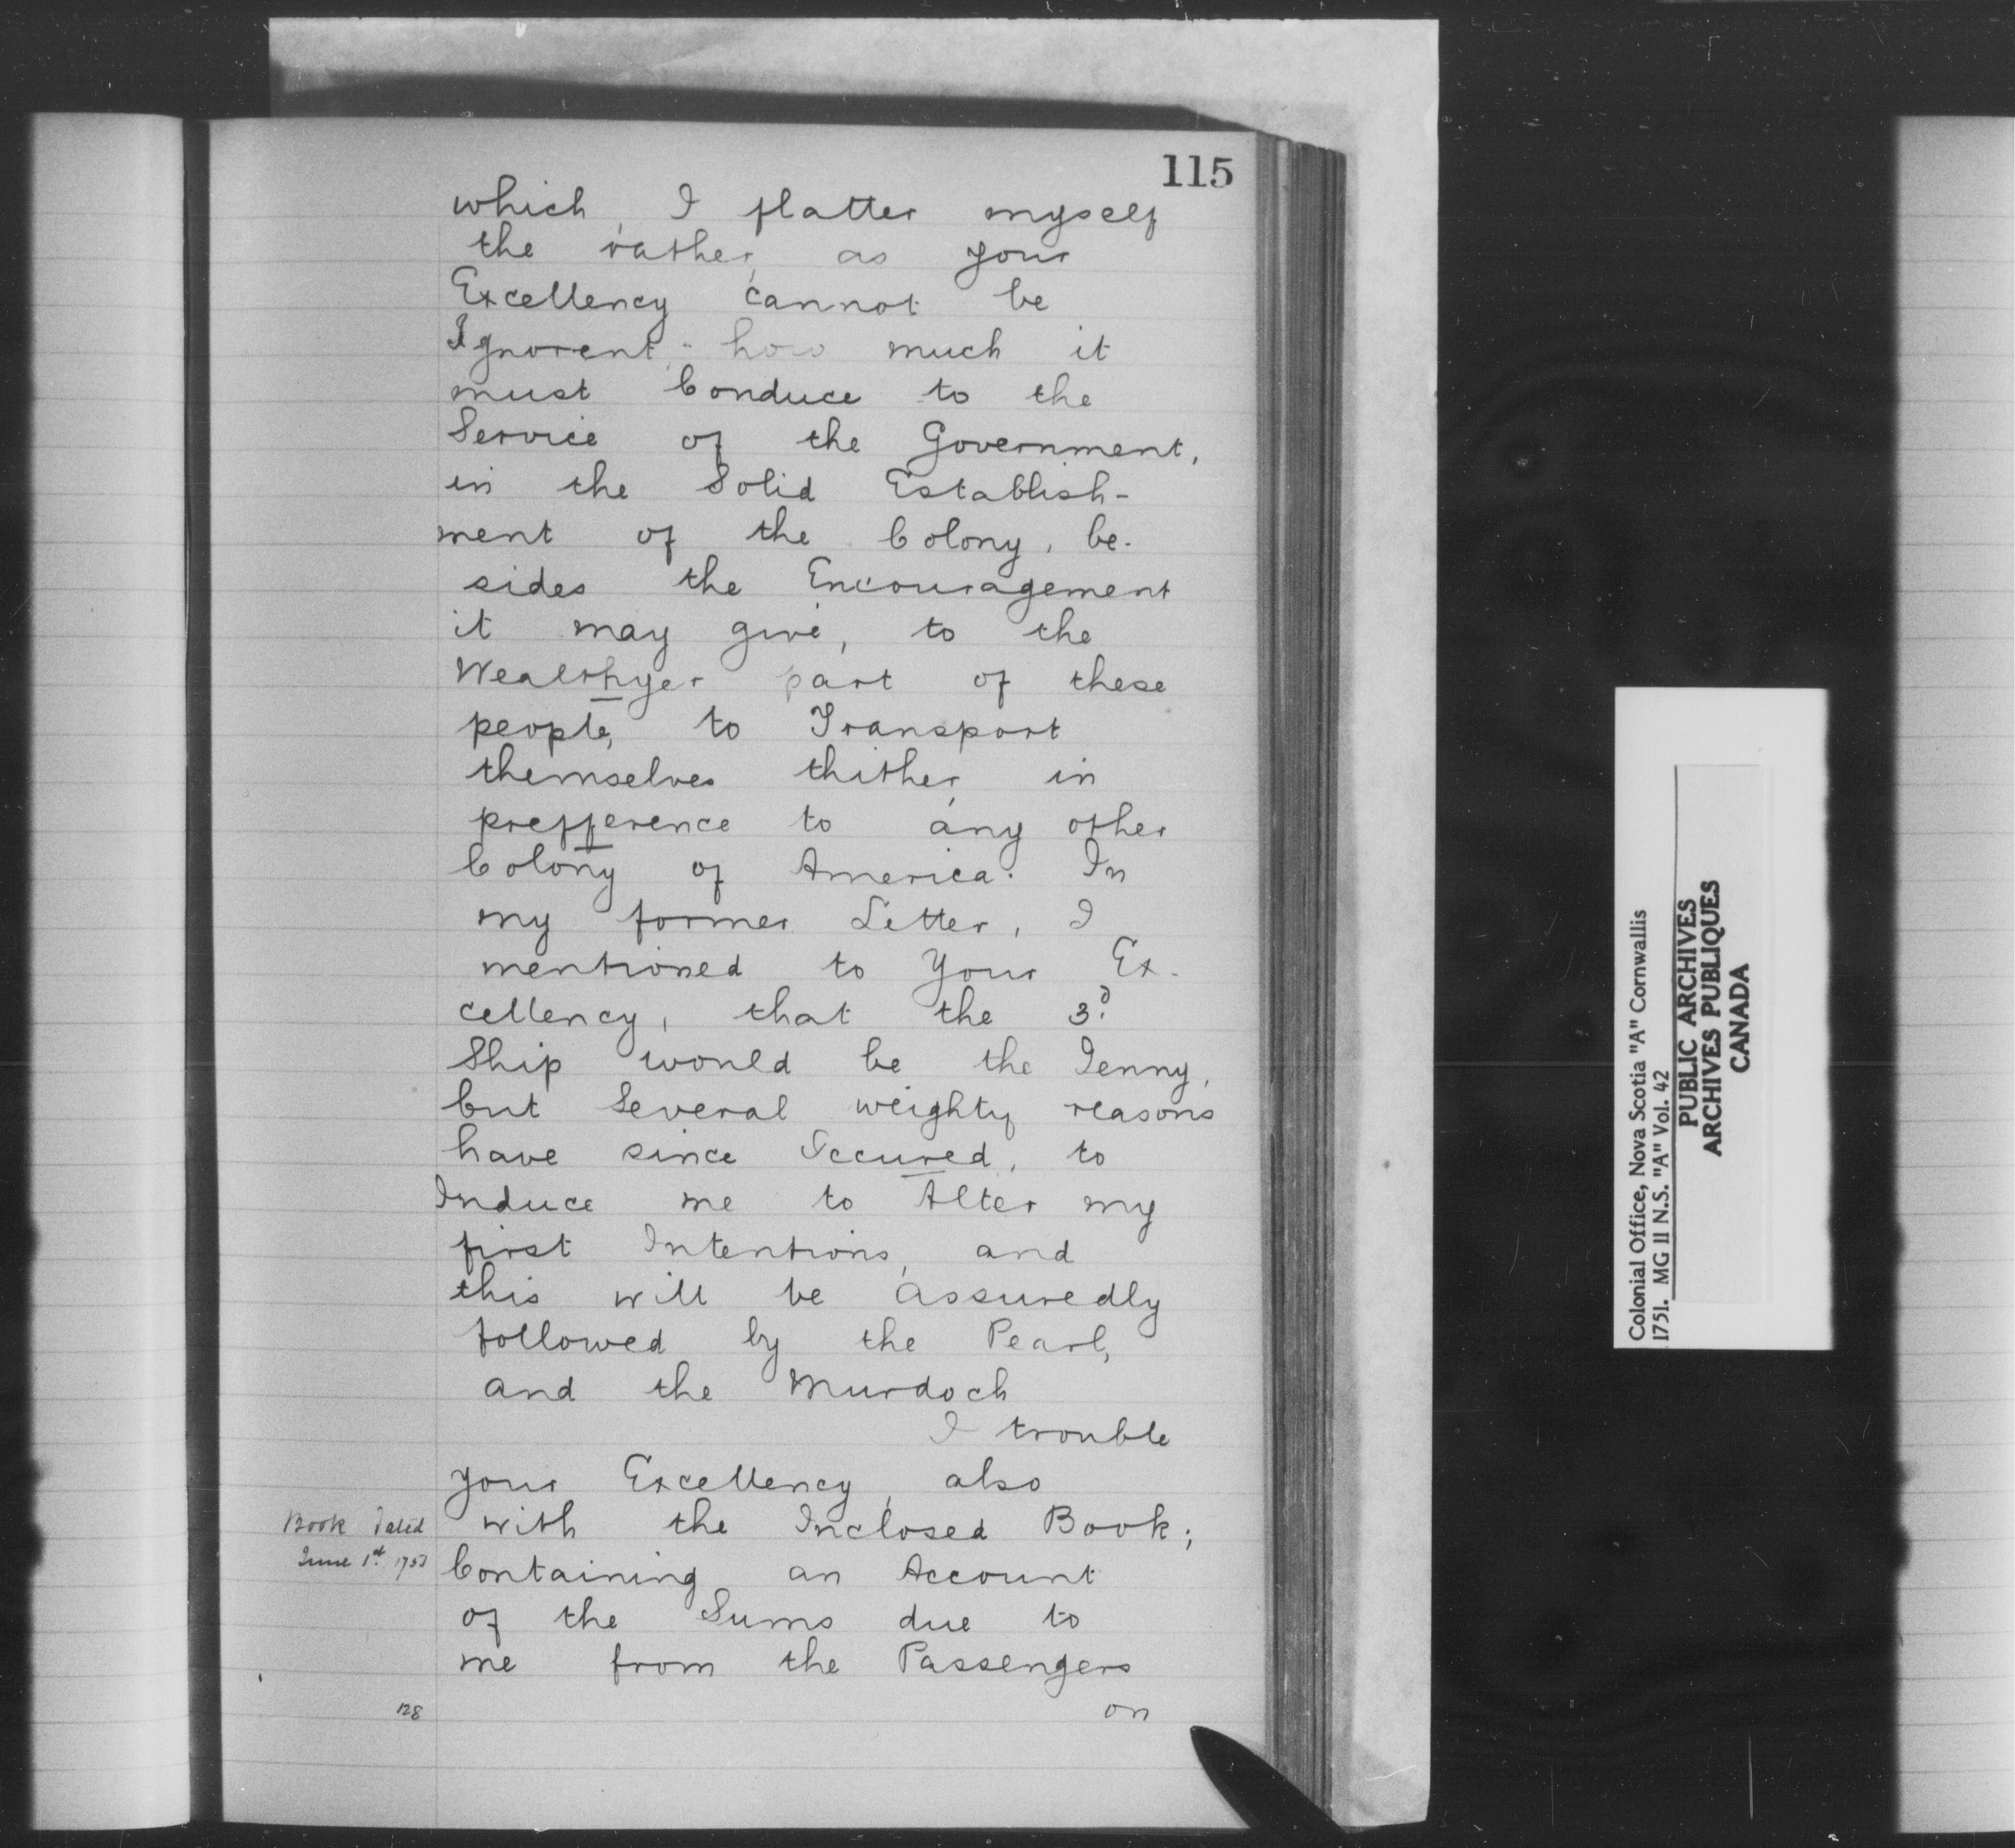 115
which, I flatter myself
the rather, as your
Excellency cannot be
Ignorent how much it
must Conduce to the
Service of the Government,
in the Solid Establish-
ment of the Colony, be-
sides the Encouragement
it may give, to the
Wealthyer part of these
people, to Transport
themselves thither, in
prefference to any other
Colony of America. In
my former Letter, I
mentioned to Your Ex-
cellency, that the 3d
Ship would be the Jenny,
but Several weighty reasons
have since Occured, to
Induce me to Alter my
first Intentions, and
this will be assuredly
followed by the Pearl,
and the Murdoch
I trouble
your Excellency, also
Book dated
June 1st 1751
with the Inclosed Book;
Containing an Account
of the Sums due to
me from the Passengers
128
on
Colonial Office, Nova Scotia "A" Cornwallis
1751. MG 11 N.S. "A" Vol. 42
PUBLIC ARCHIVES
ARCHIVES PUBLIQUES
CANADA